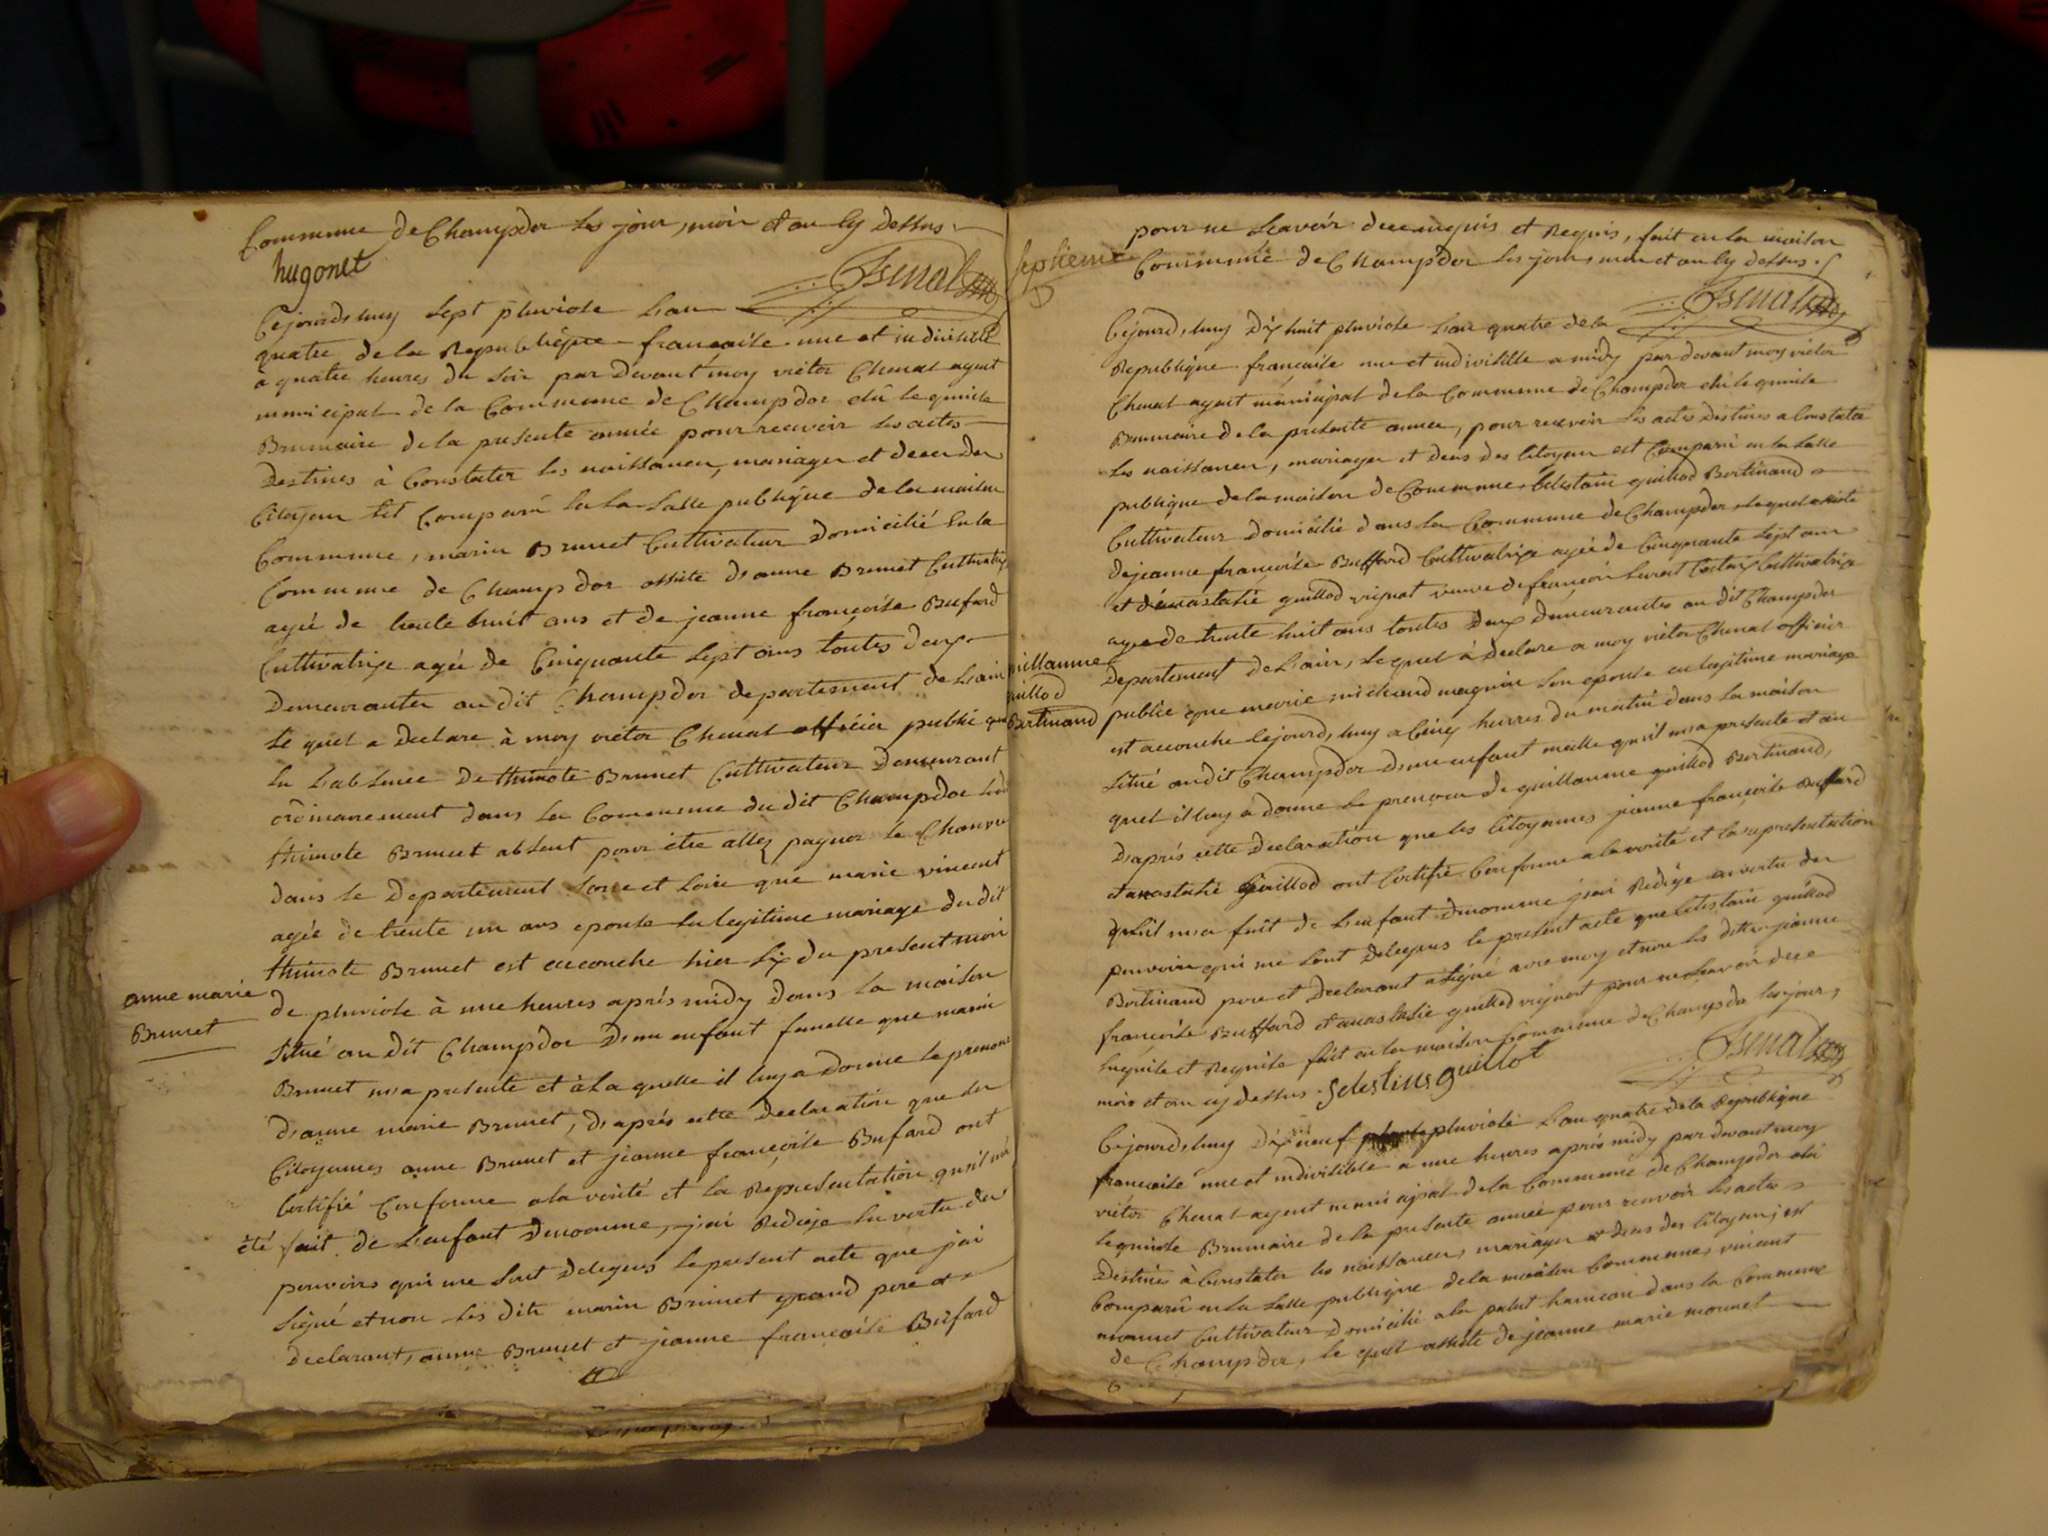 Commune de Champdor les jour, mois et an cy dessus.
hugonet
Chenal
Cejourdhuy sept pluviose L'an
quatre de la Republique francaise une et indivisible
a quatre heures du soir par devant moy victor Chenal agent
municipal de la Commune de Champdor elû le quinse
Brumaire de la presente année pour recevoir les actes
Destinés à Constater les naissances, mariages et deces des
Citoyens Est Comparû en la salle publique de la maison
Commune, marin Brunet Cultivateur Domicilié en la
Commune de Champdor assité d'anne Brunet Cultivatrice
agée de trente huit ans et de jeanne françoise Bufard
Cultivatrice agée de Cinquante sept ans toutes deux
Demeurantes au dit Champdor departement de L'ain
Le quel a declare à moy victor Chenal officier public que
En L'absence De thimote Brunet Cultivateur Demeurant
ordinairement dans la Commune du dit Champdor
thimote Brunet absent pour être allez pagner le Chanvre
dans le Departement Sone et Loire que marie vincent
agée de trente un ans epouse en legitime mariage du dit
thimote Brunet est accouche hier six du present mois
anne marie
Brunet
de pluviose à une heures aprés midy dans la maison
situé au dit Champdor D'un enfant femelle que marin
Brunet m'a presente et à la quelle il luy a donne le prenom
d'anne marie Brunet, d'aprés cette declaration que les
Citoyennes anne Brunet et jeanne françoise Bufard ont
Certifié Conforme a la verité et la Representation qu'il m'a
été fait de L'enfant denomme, j'ai Redigé En vertu des
pouvoirs qui me sont Delegues le present acte que j'ai
signé et non les dits marin Brunet grand pere et
declarant, anne Brunet et jeanne francoise Bufard
pour ne sçavoir de ce enquis et Requis, fait en la maison
septieme
Commune de Champdor les jour, mois et an cy dessus.
Chenal
Cejourdhuy Dix huit pluviose L'an quatre de la
Republique française une et indivisible a midy par devant moy victor
Chenal agent municipal de la Commune de Champdor elû le quinse
Brumaire de la presente annee, pour recevoir les actes Destinés a Constater
les naissances, mariages et deces des Citoyens est Comparû en la salle
publique de la maison de Commune Celestain guillod Bertinand
Cultivateur Domicilié dans la Commune de Champdor, lequel assisté
de jeanne françoise Buffard Cultivatrice agée de Cinquante sept ans
et d'anastasie guillod vignat veuve de françois Cultivatrice
agée de trente huit ans toutes Deux demeurantes au dit Champdor
guillaume
guillod
Bertinand
departement de L'ain, le quel à declare a moy victor Chenal officier
public que marie michaud magnin son epouse en legitime mariage
est accouche Cejourdhuy a Cinq heures du matin dans la maison
situé au dit Champdor D'un enfant mâlle qu'il m'a presente et au
quel il luy a donne le prenom de guillaume guillod Bertinand,
D'aprés cette Declaration que les Citoyennes jeanne françoise Buffard
et anastasie guillod ont Certifie Conforme a la verité et la representation
qu'il m'a fait de L'enfant denomme j'ai Redigé en vertu des
pouvoirs qui me sont Delegues le present acte que Celestain guillod
Bertinand pere et Declarant a signé avec moy et non les dittes jeanne
françoise Buffard et anastasie guillod vignat pour ne sçavoir de ce
Enquise et Requise fait en la maison Commune de Champdor les jour,
mois et an cy dessus. Selestins guillot
Chenal
Cejourdhuy Dix neuf pluviose L'an quatre de la Republique
francaise une et indivisible a une heures aprés midy par devant moy
victor Chenal agent municipal de la Commune de Champdor elû
le quinse Brumaire de la presente année pour recevoir les actes
Destinés à Constater les naissances, mariages et deces des Citoyens, est
Comparû en la salle publique de la maison Commune, vincent
monnet Cultivateur Domicilié a la palut hameau dans la Commune
de Champdor, le quel assité de jeanne marie monnet